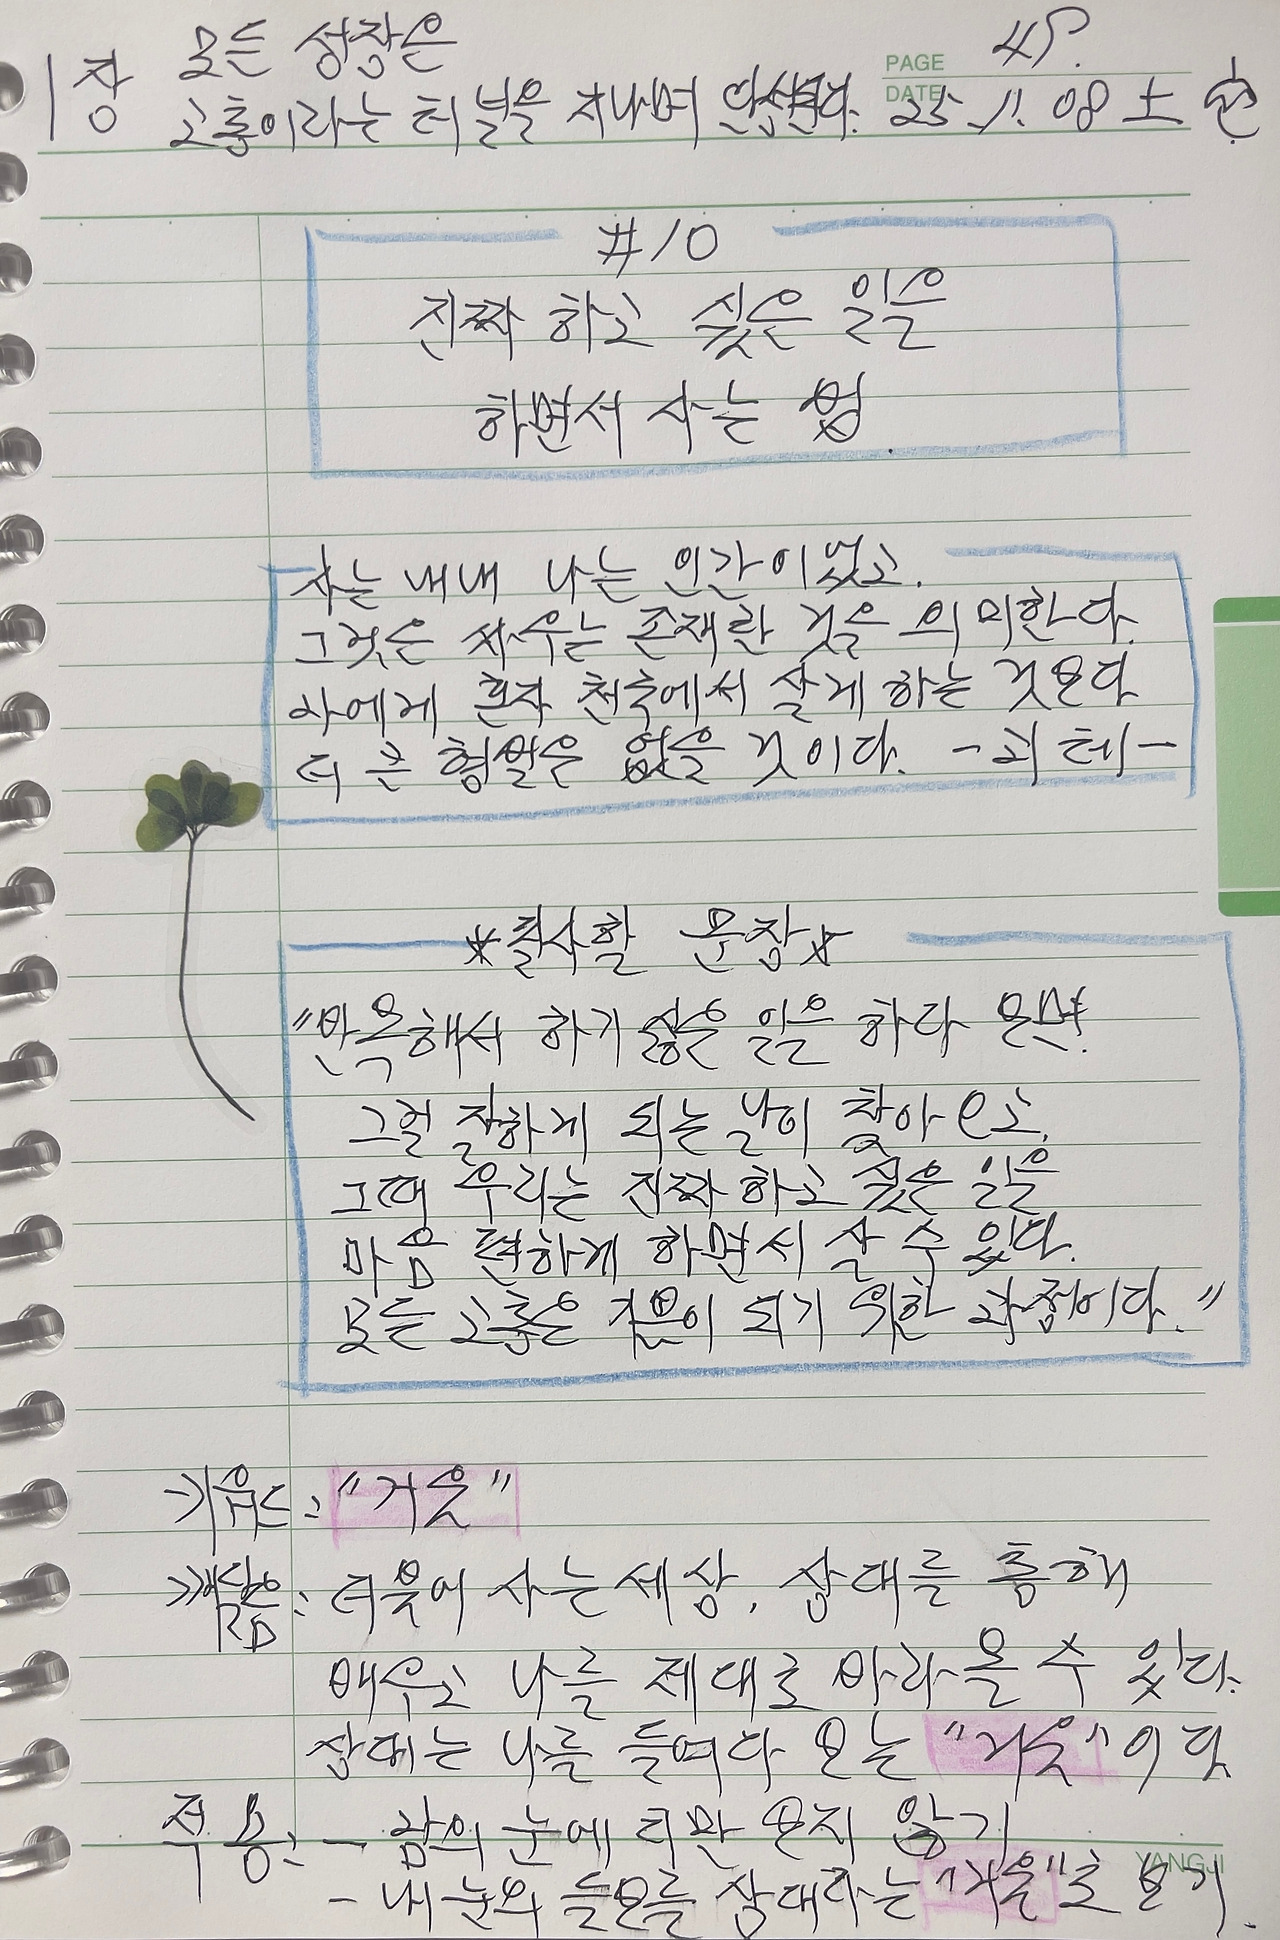 1장 모든 성장은
고통이라는 터널을 지나며 완성된다.
PAGE 4P.
DATE 25. 11. 08 토
#10
진짜 하고 싶은 일을
하면서 사는 법
사는 내내 나는 인간이었고,
그것은 싸우는 존재란 것을 의미한다.
나에게 혼자 천국에서 살게 하는 것보다
더 큰 형벌은 없을 것이다. -괴테-
*필사할 문장*
"반복해서 하기 싫은 일을 하다 보면,
그걸 잘하게 되는 날이 찾아오고,
그때 우리는 진짜 하고 싶은 일을
마음 편하게 하면서 살 수 있다.
모든 고통은 기쁨이 되기 위한 과정이다."
키워드: "거울"
깨달음: 더불어 사는 세상, 상대를 통해
배우고 나를 제대로 바라볼 수 있다.
상대는 나를 들여다 보는 "거울"이다
적용: - 남의 눈에 티만 보지 않기
- 내 눈의 들보를 상대라는 "거울"로 보기.
YANGJI